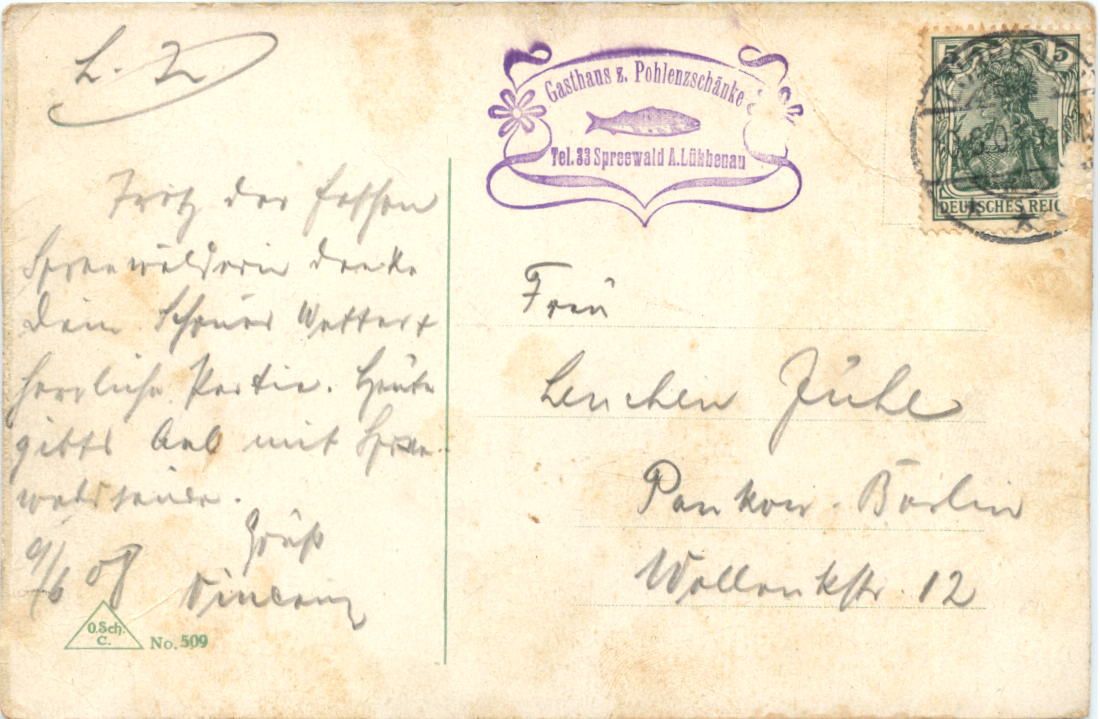 L. Z.
Trotz der feschen
Spreewälderin denke
Dein. Schönes Wetter +
herrliche Partie. Heute
gibts Aal mit Spree-
waldsauce.
Gruß
9/6 08 Vincenz
O.Sch.
C.
No. 509
Gasthaus z. Pohlenzschänke
Tel. 33 Spreewald A. Lübbenau
5
DEUTSCHES REIC
Frau
Lenchen Jühe
Pankow-Berlin
Wollankstr. 12